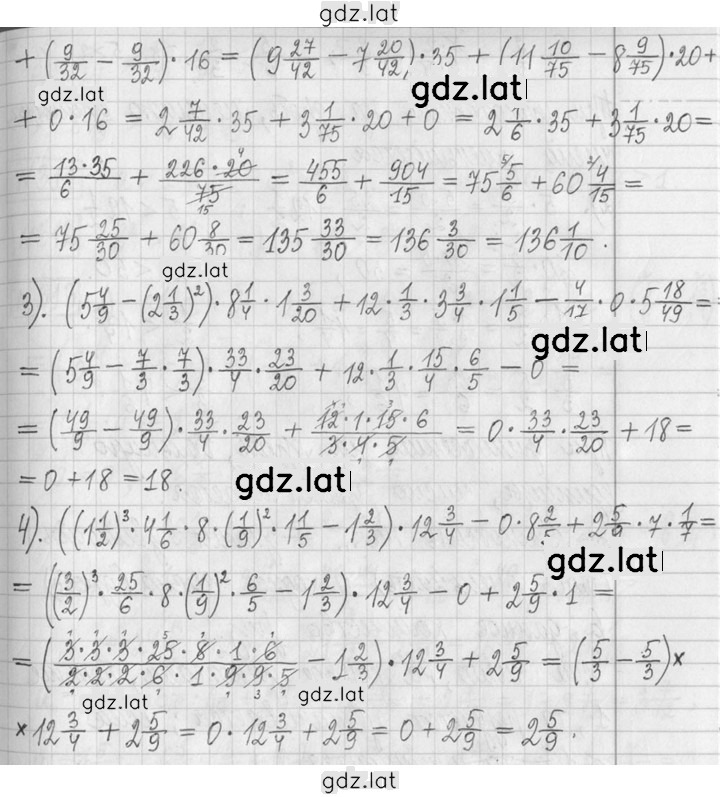 gdz.lat
+ (9/32 − 9/32) · 16 = (9 27/42 − 7 20/42) · 35 + (11 10/75 − 8 9/75) · 20 +
gdz.lat gdz.lat
+ 0 · 16 = 2 7/42 · 35 + 3 1/75 · 20 + 0 = 2 1/6 · 35 + 3 1/75 · 20 =
= 13·35/6 + 226·20/75 = 455/6 + 904/15 = 75 5/6 + 60 4/15 =
= 75 25/30 + 60 8/30 = 135 33/30 = 136 3/30 = 136 1/10.
gdz.lat
3). (5 4/9 − (2 1/3)²) · 8 1/4 · 1 3/20 + 12 · 1/3 · 3 3/4 · 1 1/5 − 4/17 · 0 · 5 18/49 =
gdz.lat
= (5 4/9 − 7/3 · 7/3) · 33/4 · 23/20 + 12 · 1/3 · 15/4 · 6/5 − 0 =
= (49/9 − 49/9) · 33/4 · 23/20 + 12·1·15·6/3·4·5 = 0 · 33/4 · 23/20 + 18 =
= 0 + 18 = 18.
gdz.lat
4). ((1 1/2)³ · 4 1/6 · 8 · (1/9)² · 1 1/5 − 1 2/3) · 12 3/4 − 0 · 8 2/5 + 2 5/9 · 7 · 1/7 =
gdz.lat
= ((3/2)³ · 25/6 · 8 · (1/9)² · 6/5 − 1 2/3) · 12 3/4 − 0 + 2 5/9 · 1 =
= (3·3·3·25·8·1·6/2·2·2·6·1·9·9·5 − 1 2/3) · 12 3/4 + 2 5/9 = (5/3 − 5/3) ×
gdz.lat gdz.lat
× 12 3/4 + 2 5/9 = 0 · 12 3/4 + 2 5/9 = 0 + 2 5/9 = 2 5/9.
gdz.lat